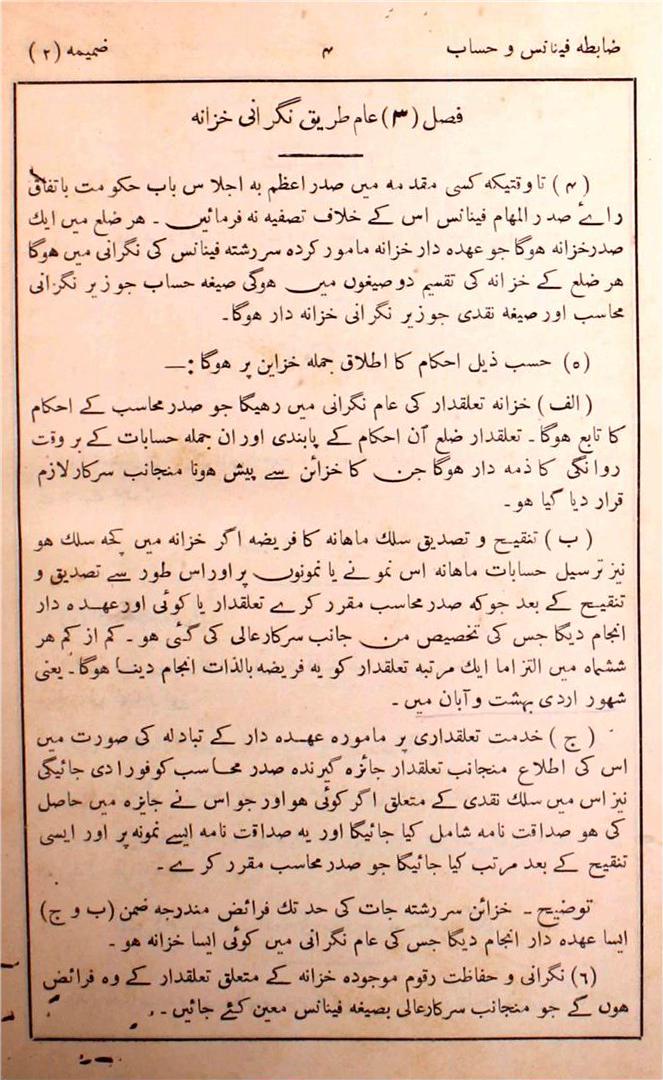 ضابطه فینانس و حساب ۴ ضمیمه (۲)
فصل (۳) عام طریق نگرانی خزانه
(۴) تا وقتیکه کسی مقدمه میں صدر اعظم به اجلاس باب حکومت باتفاق
راے صدر المهام فینانس اس کے خلاف تصفیه نه فرمائیں ۔ هر ضلع میں ایك
صدر خزانه هوگا جو عهده دار خزانه مامور کرده سررشته فینانس کی نگرانی میں هوگا
هر ضلع کے خزانه کی تقسیم دو صیغوں میں هوگی صیغه حساب جو زیر نگرانی
محاسب اور صیغه نقدی جو زیر نگرانی خزانه دار هوگا۔
(۵) حسب ذیل احکام کا اطلاق جمله خزاین پر هوگا :—
(الف) خزانه تعلقدار کی عام نگرانی میں رهیگا جو صدر محاسب کے احکام
کا تابع هوگا ۔ تعلقدار ضلع اُن احکام کے پابندی اور ان جمله حسابات کے بر وقت
روانگی کا ذمه دار هوگا جن کا خزائن سے پیش هونا منجانب سرکار لازم
قرار دیا گیا هو ۔
(ب) تنقیح و تصدیق سلك ماهانه کا فریضه اگر خزانه میں کچه سلك هو
نیز ترسیل حسابات ماهانه اس نمونے یا نمونوں پر اور اس طور سے تصدیق و
تنقیح کے بعد جو که صدر محاسب مقرر کرے تعلقدار یا کوئی اور عهده دار
انجام دیگا جس کی تخصیص من جانب سرکار عالی کی گئی هو ۔ کم از کم هر
ششماه میں التزاما ایك مرتبه تعلقدار کو یه فریضه بالذات انجام دینا هوگا۔ یعنی
شهور اردی بهشت و آبان میں ۔
(ج) خدمت تعلقداری پر ماموره عهده دار کے تبادله کی صورت میں
اس کی اطلاع منجانب تعلقدار جائزه گیرنده صدر محاسب کو فورا دی جائیگی
نیز اس میں سلك نقدی کے متعلق اگر کوئی هو اور جو اس نے جایزه میں حاصل
کی هو صداقت نامه شامل کیا جائیگا اور یه صداقت نامه ایسے نمونه پر اور ایسی
تنقیح کے بعد مرتب کیا جائیگا جو صدر محاسب مقرر کرے ۔
توضیح ۔ خزائن سررشته جات کی حد تك فرائض مندرجه ضمن (ب و ج)
ایسا عهده دار انجام دیگا جس کی عام نگرانی میں کوئی ایسا خزانه هو ۔
(٦) نگرانی و حفاظت رقوم موجوده خزانه کے متعلق تعلقدار کے وه فرائض
هوں گے جو منجانب سرکار عالی بصیغه فینانس معین کئے جائیں ۔